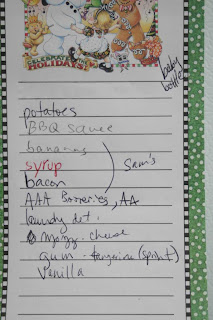 CELEBRATE the
HOLIDAYS!
baby
bottles
potatoes
BBQ sauce
bananas
syrup
Sam's
bacon
AAA Batteries, AA
laundry det.
Mozz. cheese
gum - tangerine (sprint)
Vanilla